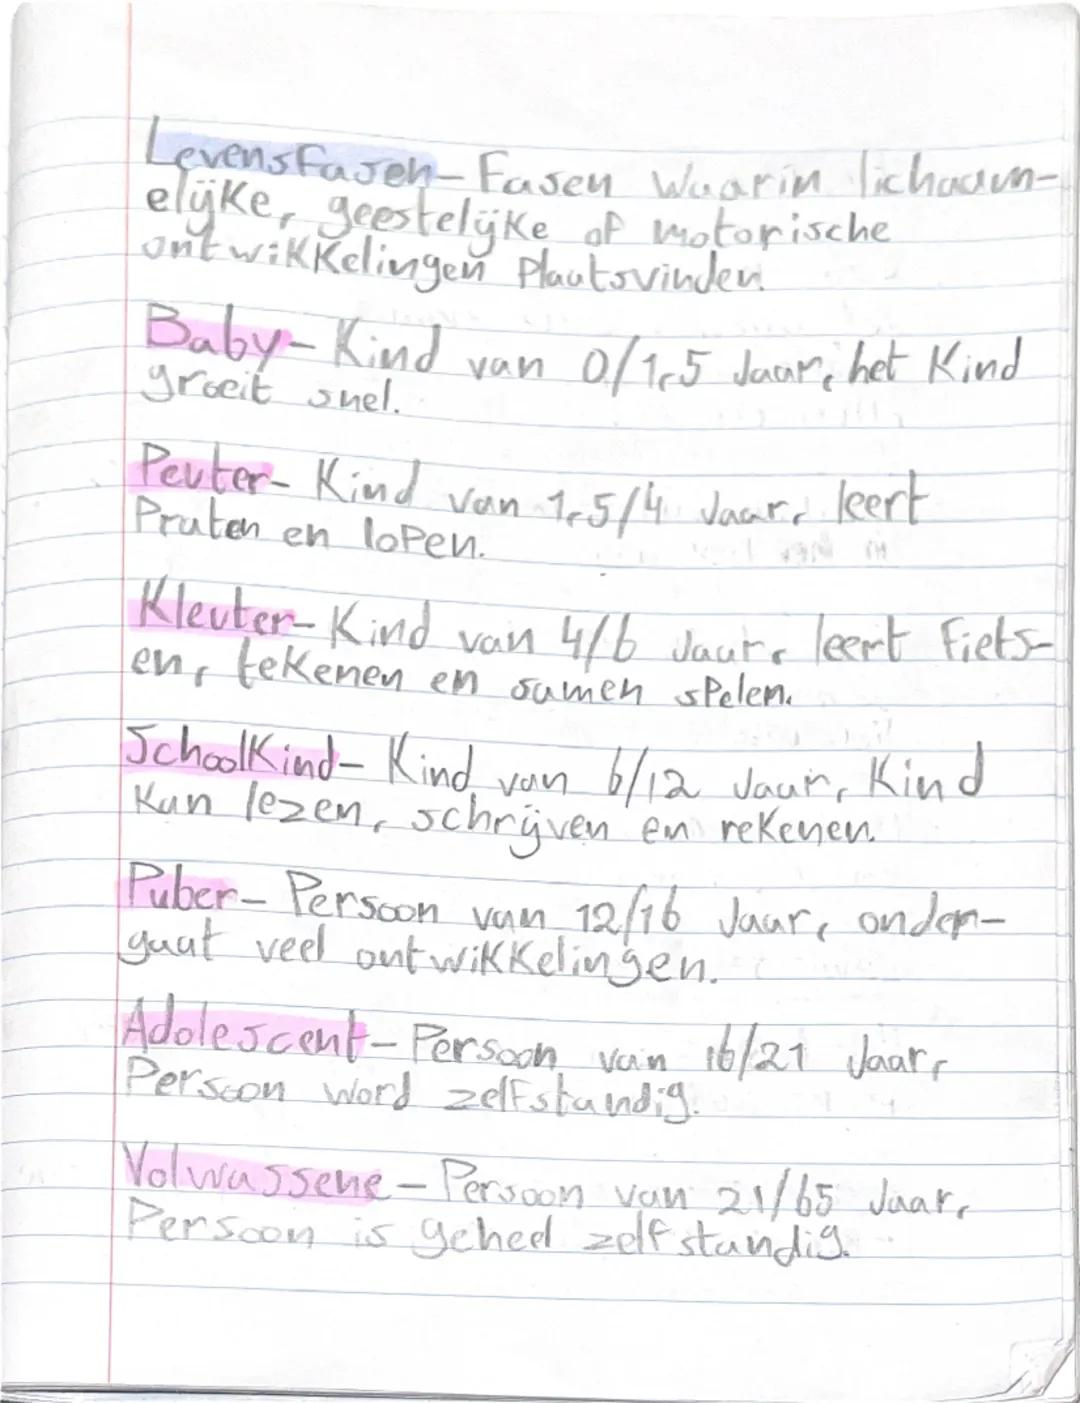 Levensfasen- Fasen waarin lichaam-
elijke, geestelijke of motorische
ontwikkelingen plaatsvinden.
Baby- Kind van 0/1,5 Jaar, het Kind
groeit snel.
Peuter- Kind van 1,5/4 Jaar, leert
Praten en lopen.
Kleuter- Kind van 4/6 Jaar, leert fiets-
en, tekenen en samen spelen.
Schoolkind- Kind van 6/12 Jaar, Kind
kan lezen, schrijven en rekenen.
Puber- Persoon van 12/16 Jaar, onder-
gaat veel ontwikkelingen.
Adolescent- Persoon van 16/21 Jaar,
Persoon word zelfstandig.
Volwassene- Persoon van 21/65 Jaar,
Persoon is geheel zelfstandig.